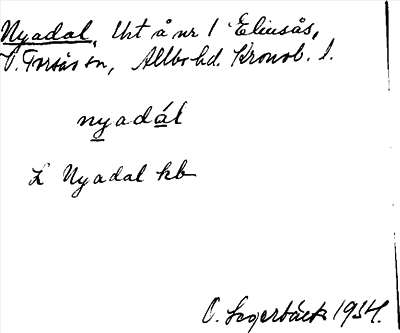 Nyadal, Urt å nr 1 Elinsås,
V. Torsås sn, Allbo hd. Kronob. l.
nyadál
L Nyadal kb
O. Lagerbäck 1934.